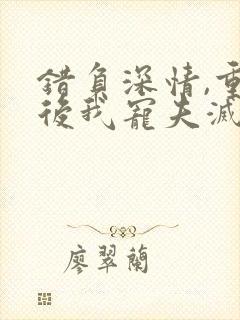 錯負深情,重
後我寵夫滅
廖翠蘭